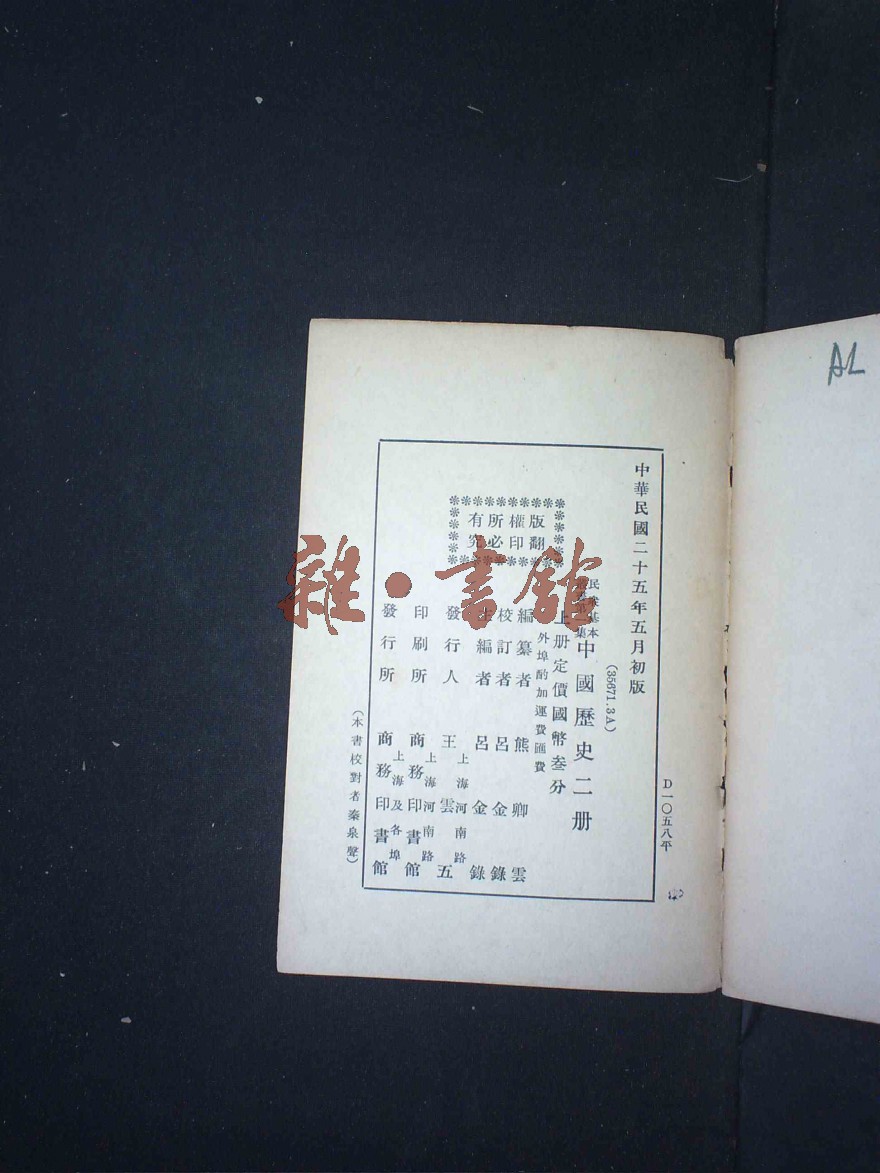 中華民國二十五年五月初版
D一〇五八平
(35671.3A)
民衆基本
中國歷史二册
上册定價國幣叁分
外埠酌加運費匯費
版權所有
翻印必究
編纂者 熊卿雲
校訂者 呂金錄
主編者 呂金錄
發行人 王雲五
上海河南路
印刷所 商務印書館
上海河南路
發行所 商務印書館
上海及各埠
(本書校對者秦泉聲)
雜·書館
AL